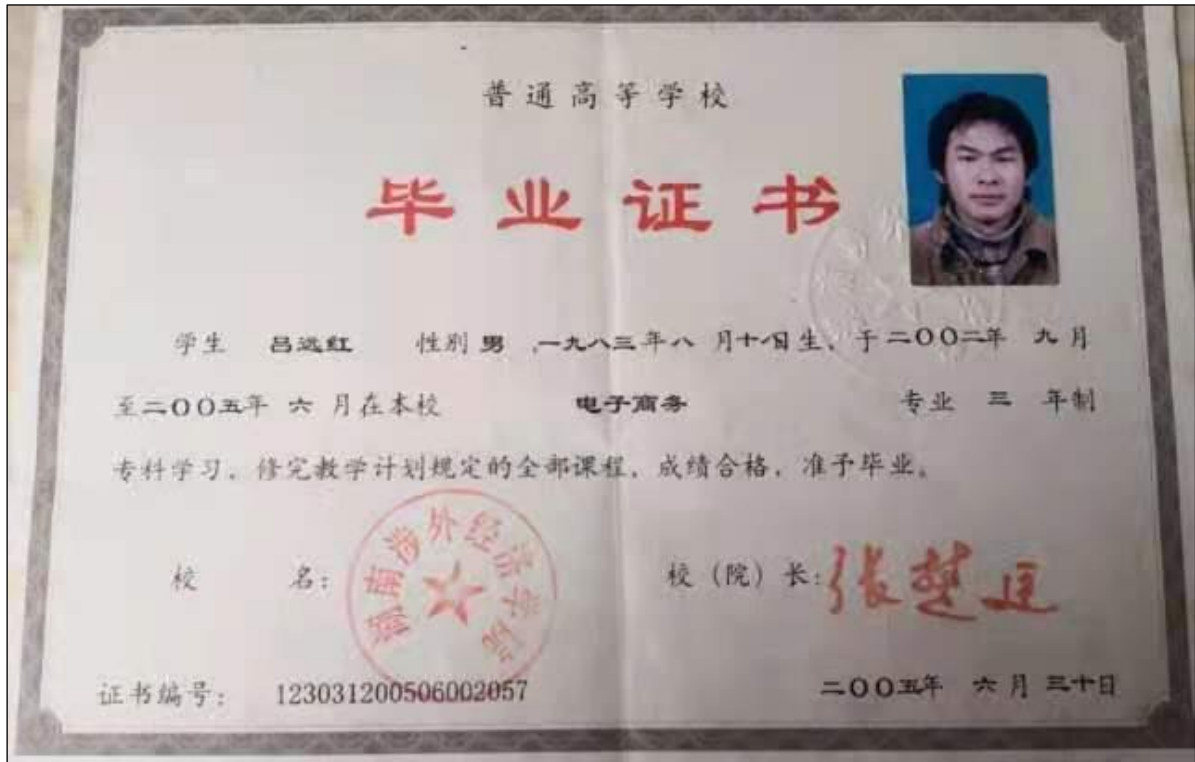 普通高等学校
毕业证书
学生 吕远红 性别 男 ,一九八三年八 月十八日生、于二〇〇二年 九月
至二〇〇五年 六 月在本校 电子商务 专业 三 年制
专科学习、修完教学计划规定的全部课程、成绩合格,准予毕业。
校 名: 湖南涉外经济学院
校(院)长: 张楚廷
证书编号: 123031200506002057
二〇〇五年 六月 三十日